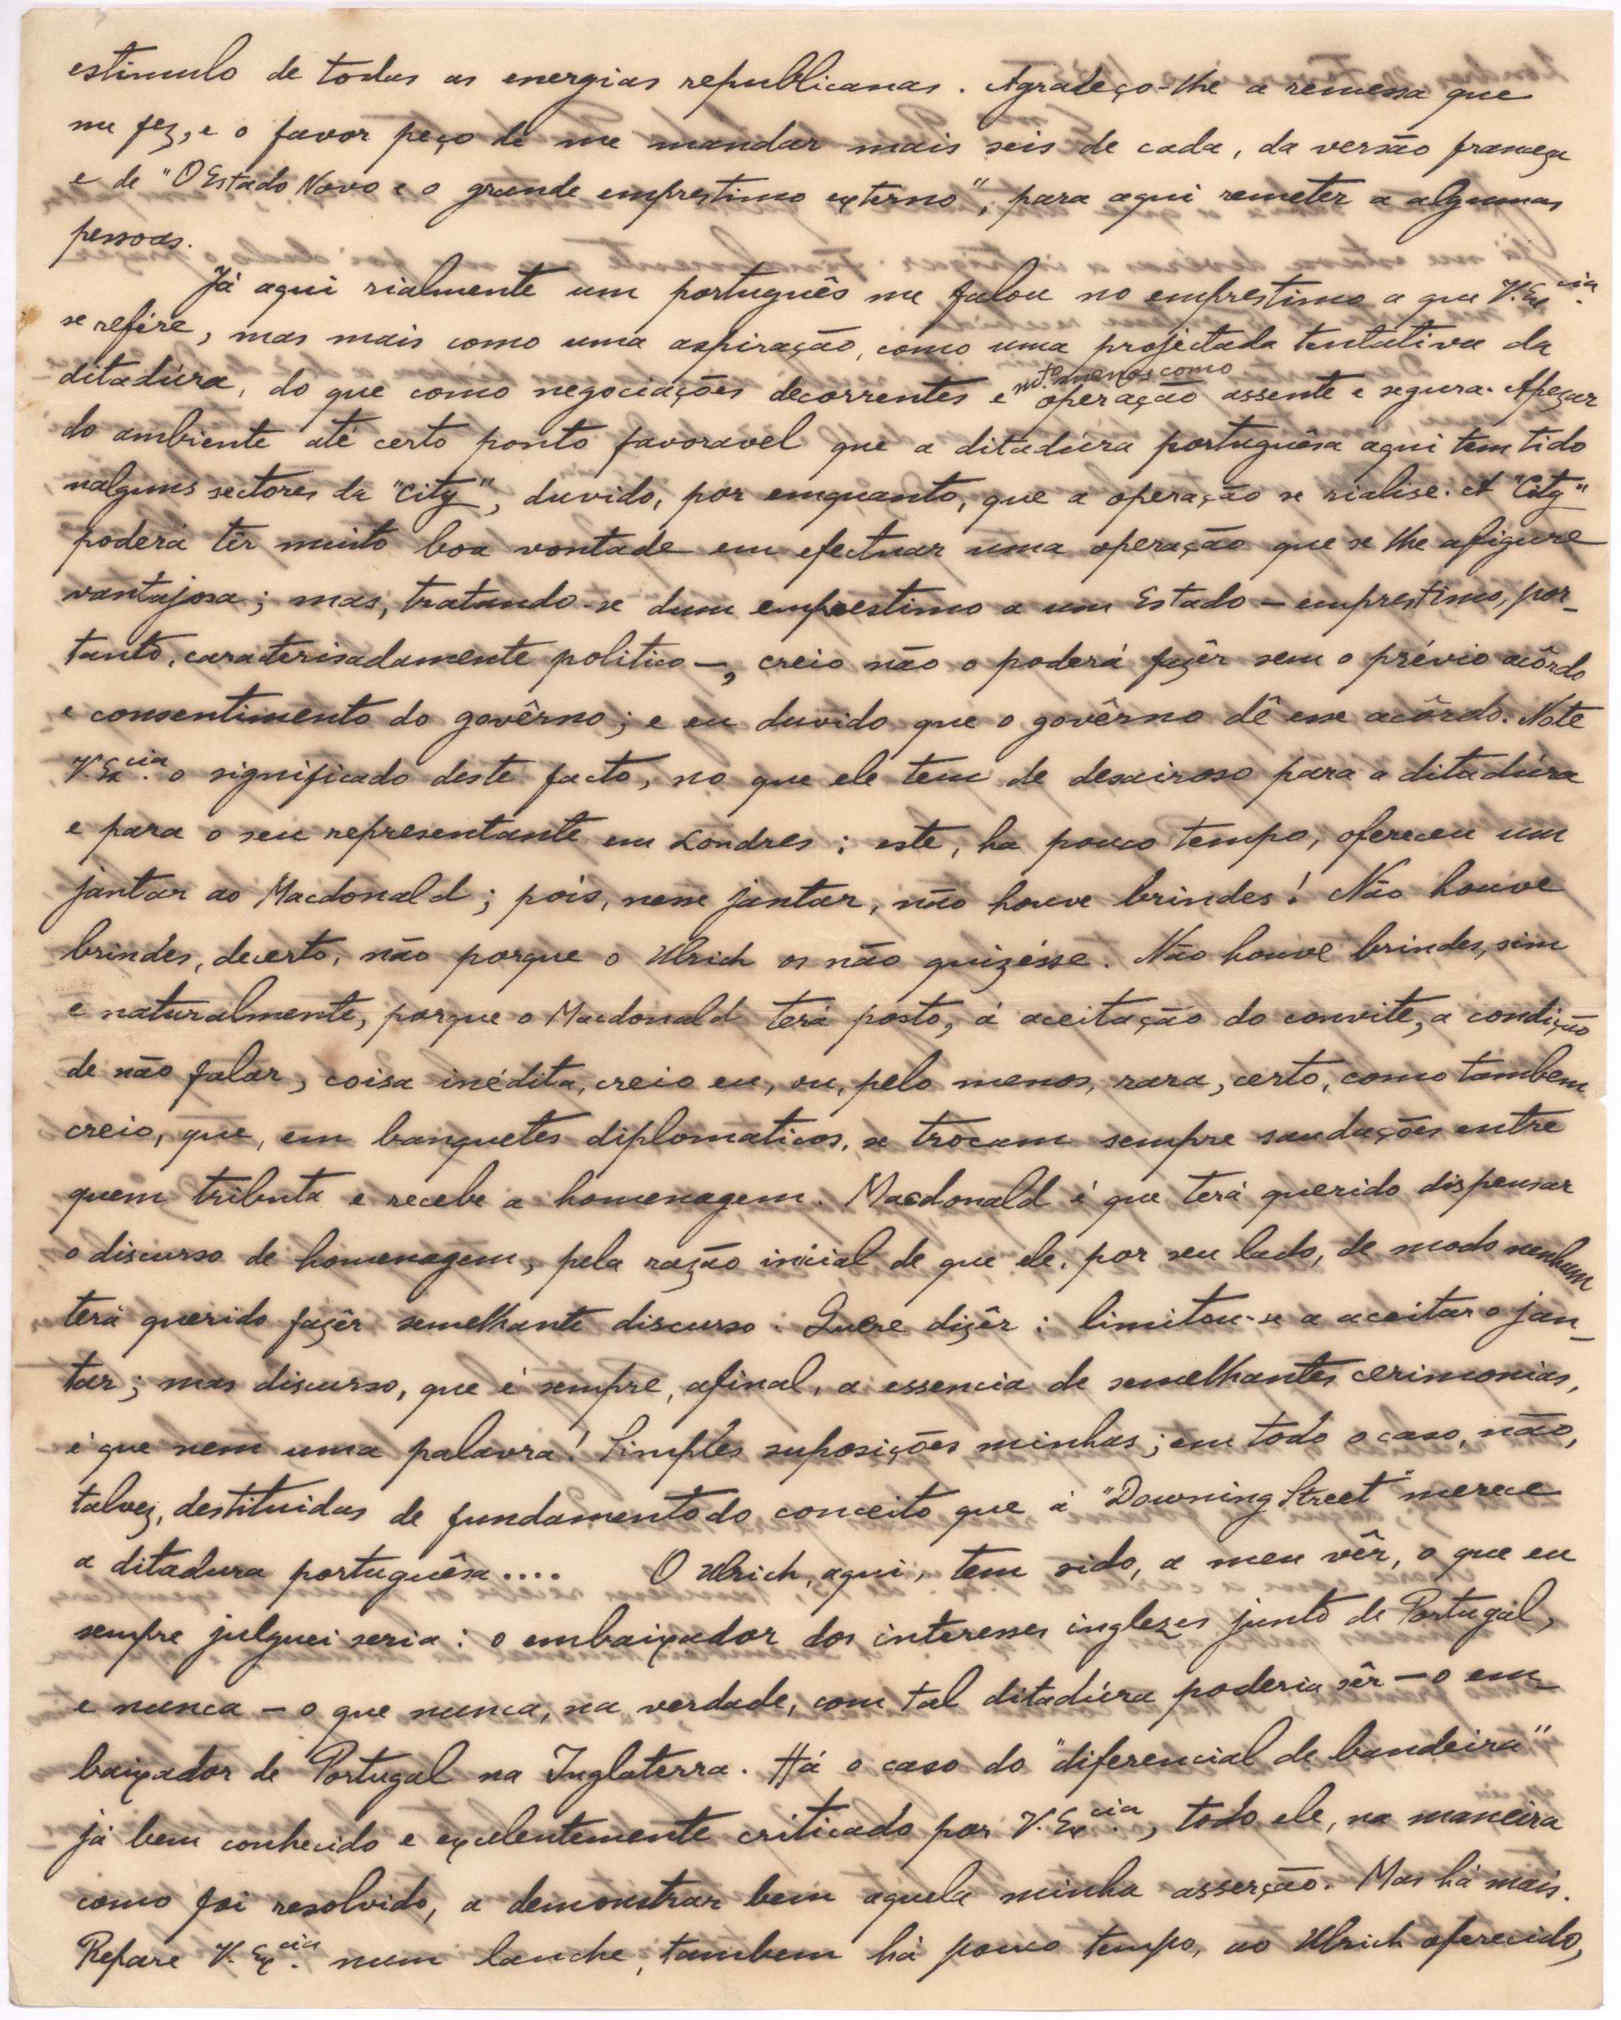 estimulo de todas as energias republicanas. Agradeço-lhe a remessa que
me fez, e o favor peço de me mandar mais seis de cada, da versão franceza
e de "O Estado Novo e o grande emprestimo externo", para aqui remeter a algumas
pessoas.
Já aqui rialmente um português me falou no emprestimo a que V. Ex.cia
se refére, mas mais como uma aspiração, como uma projectada tentativa da
ditadúra, do que como negociações decorrentes e m.to menos como operação assente e segura. Apezar
do ambiente até certo ponto favoravel que a ditadúra portuguêsa aqui tem tido
nalguns sectores da "City", duvido, por emquanto, que a operação se rialise. A "City"
poderá têr muito boa vontade em efectuar uma operação que se lhe afigure
vantajosa; mas, tratando-se dum emprestimo a um Estado – emprestimo, por-
tanto, caraterisadamente politico –, creio não o poderá fazêr sem o prévio acôrdo
e consentimento do govêrno; e eu duvido que o govêrno dê esse acôrdo. Note
V. Ex.cia o significado deste facto, no que ele tem de desairoso para a ditadúra
e para o seu representante em Londres: este, ha pouco tempo, ofereceu um
jantar ao Macdonald; pois, nesse jantar, não houve brindes! Não houve
brindes, decerto, não porque o Ulrich os não quizésse. Não houve brindes, sim
e naturalmente, porque o Macdonald terá posto, á aceitação do convite, a condição
de não falar, coisa inédita, creio eu, ou, pelo menos, rara, certo, como tambem
creio, que, em banquetes diplomaticos, se trocam sempre saudações entre
quem tributa e recebe a homenagem. Macdonald é que terá querido dispensar
o discurso de homenagem, pela razão inicial de que ele, por seu lado, de modo nenhum
terá querido fazêr semelhante discurso. Quere dizêr: limitou-se a aceitar o jan-
tar; mas discurso, que é sempre, afinal, a essencia de semelhantes cerimonias,
é que nem uma palavra! Simples suposições minhas; em todo o caso, não,
talvez, destituidas de fundamento do conceito que á "Downing Street" merece
a ditadura portuguêsa.... O Ulrich, aqui, tem sido, a meu vêr, o que eu
sempre julguei seria: o embaixador dos interesses inglezes junto de Portugal,
e nunca – o que nunca, na verdade, com tal ditadúra poderia sêr – o em-
baixador de Portugal na Inglaterra. Há o caso do "diferencial de bandeira"
já bem conhecido e excelentemente criticado por V. Ex.cia, todo ele, na maneira
como foi resolvido, a demonstrar bem aquela minha asserção. Mas há mais.
Repare V. Ex.cia num lanche, tambem há pouco tempo, ao Ulrich oferecido,